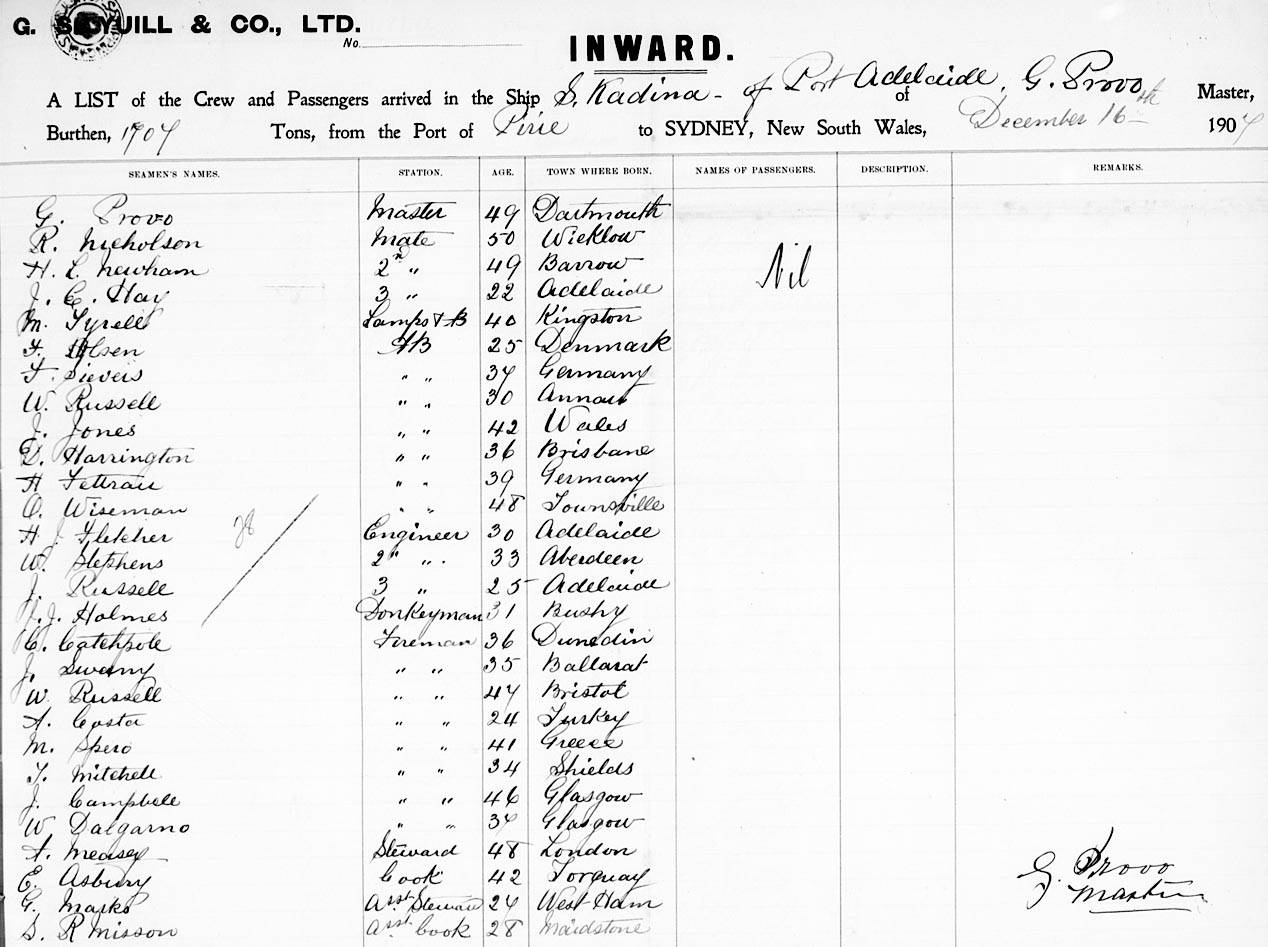 G. S. YUILL & CO., LTD.
No.
INWARD.
A LIST of the Crew and Passengers arrived in the Ship S. Kadina - of Port Adelaide, of G. Provo Master,
Burthen, 1707 Tons, from the Port of Pirie to SYDNEY, New South Wales, December 16th 1907
SEAMEN'S NAMES. STATION. AGE. TOWN WHERE BORN. NAMES OF PASSENGERS. DESCRIPTION. REMARKS.
G. Provo Master 49 Dartmouth
R. Nicholson Mate 50 Wicklow
H. L. Newham 2nd " 49 Barrow
Nil
J. C. Hay 3 " 22 Adelaide
M. Tyrell Lamps & AB 40 Kingston
F. Olsen AB 25 Denmark
F. Sievers " " 37 Germany
W. Russell " " 30 Annan
J. Jones " " 42 Wales
D. Harrington " " 36 Brisbane
H Tettrau " " 39 Germany
O. Wiseman " " 48 Townsville
28
H J. Fletcher Engineer 30 Adelaide
W. Stephens 2" " 33 Aberdeen
J. Russell 3 " 25 Adelaide
J. Holmes Donkeyman 31 Bushy
C. Catchpole Fireman 36 Dunedin
J. Swany " " 35 Ballarat
W. Russell " " 47 Bristol
A. Costa " " 24 Turkey
M. Spero " " 41 Greece
T. Mitchell " " 34 Shields
J. Campbell " " 46 Glasgow
W Dalgarno " " 37 Glasgow
A. Measey Steward 48 London
E. Asbury Cook 42 Torquay
G. Provo
Master
G. Marks Asst Steward 27 West Ham
S. R Misson Asst Cook 28 Maidstone